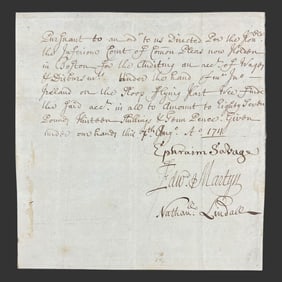 Pursuant to an ord.r to us Directed Per the Hon.ble
the Inferiour Court of Comon Pleas now Holden
in Boston for the Auditing an acc.t of Wages
& Disburs.mts Under the hand of m.r Jno
Ireland on the Sloop Flying hart Wee Finde
the said acc.t in all to Amount to Eighty Seven
Pounds thirteen Shilling & Tenn Pence. Given
under our hands this 7th Aug.t A.o 171
Ephraim Savage
Edw.d Martyn
Nathan.ll Lindall